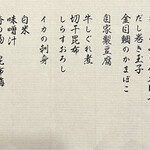 だし巻き玉子
金目鯛のかまぼこ
自家製豆腐
牛しぐれ煮
切干昆布
しらすおろし
イカの刺身
白米
味噌汁